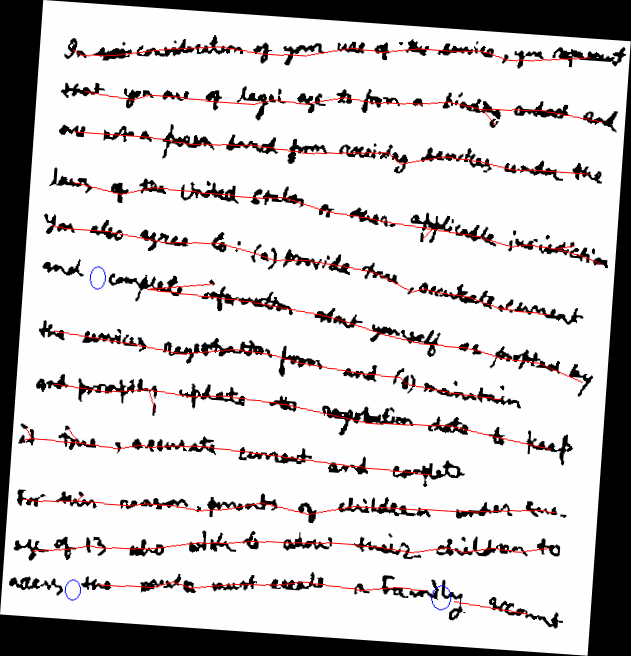 In consideration of your use of the service, you represent
that you are of legal age to form a binding contract and
are not a person barred from receiving services under the
laws of the United States or other applicable jurisdiction
You also agree to : (a) provide true , accurate, current
and complete information about yourself as prompted by
the services registration form and (b) maintain
and promptly update the registration data to keep
it true , accurate current and complete
For this reason, parents of children under the
age of 13 who wish to allow their children to
access the service must create a Family account